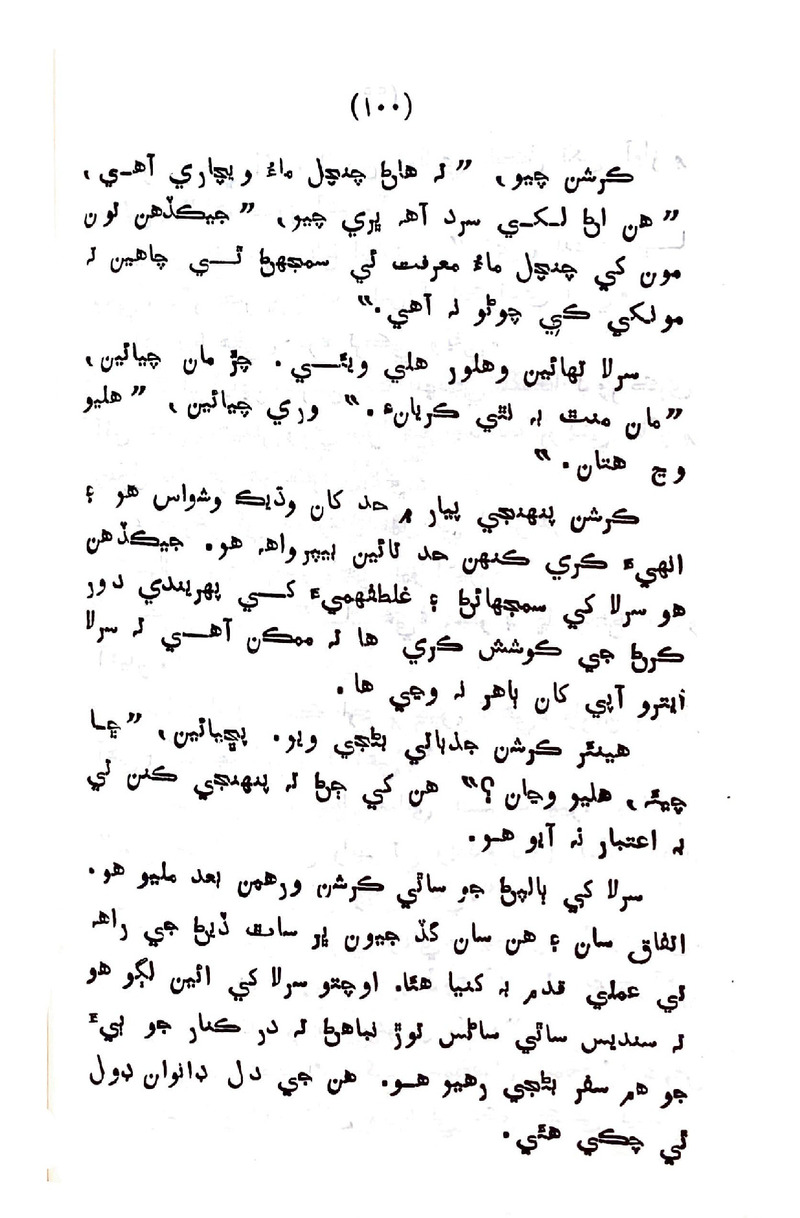 (۱۰۰)
ڪرشن چيو، ”نه هاڻ چنچل ماءُ ويچاري آهي،
”هن اڻ لکي سرد آهه ڀري چيو، ”جيڪڏهن تون
مون کي چنچل ماءُ معرفت ئي سمجهڻ ٿي چاهين ته
مونکي ڪي چوڻو نه آهي.“
سرلا تهائين وهلور هلي ويئي. چڙ مان چيائين،
”مان منٿ به نٿي ڪريانءِ.“ وري چيائين، ”هليو
وڃ هتان.“
ڪرشن پنهنجي پيار ۾ حد کان وڌيڪ وشواس هو ۽
انهيءَ ڪري ڪنهن حد تائين بيپرواهه هو. جيڪڏهن
هو سرلا کي سمجهائڻ ۽ غلطفهميءَ کي پهريندي دور
ڪرڻ جي ڪوشش ڪري ها ته ممڪن آهي ته سرلا
ايترو آپي کان ٻاهر نه وڃي ها.
هينئر ڪرشن جذباتي بڻجي ويو. پڇيائين، ”ڇا
چيئه، هليو وڃان؟“ هن کي ڄڻ ته پنهنجي ڪنن تي
به اعتبار نه آيو هو.
سرلا کي ٻالپڻ جو ساٿي ڪرشن ورهين بعد مليو هو.
اتفاق سان ۽ هن سان گڏ جيون ڀر ساٿ ڏيڻ جي راهه
تي عملي قدم به کنيا هئا. اوچتو سرلا کي ائين لڳو هو
ته سندس ساٿي ساڻس توڙ نباهڻ ته در ڪنار جو ٻيءَ
جو هم سفر بڻجي رهيو هو. هن جي دل ڊانوان ڊول
ٿي چڪي هئي.